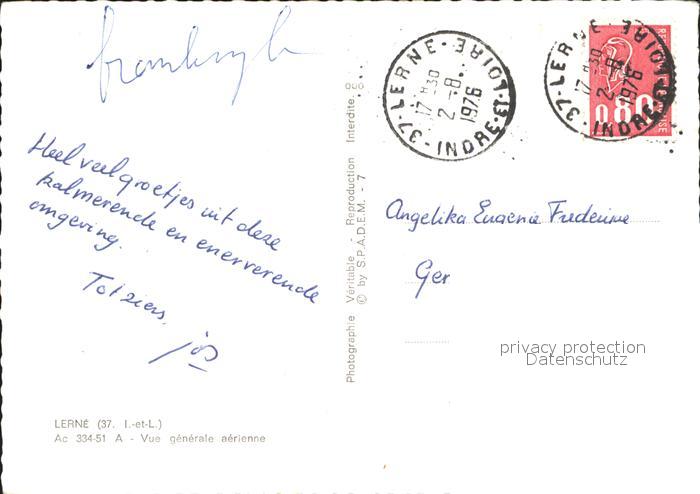 frankrijk
Heel veel groetjes uit deze
kalmerende en enerverende
omgeving.
Tot ziens,
jos
LERNÉ (37. I.-et-L.)
Ac 334-51 A - Vue générale aérienne
Photographie Véritable - Reproduction Interdite
© by S.P.A.D.E.M. - 7
37-LERNE-INDRE-ET-LOIRE
17 H 30
2 -8
1976
37-LERNE-INDRE-ET-LOIRE
17 H 30
2 -8
1976
0,80
Angelika
Ger
privacy protection
Datenschutz